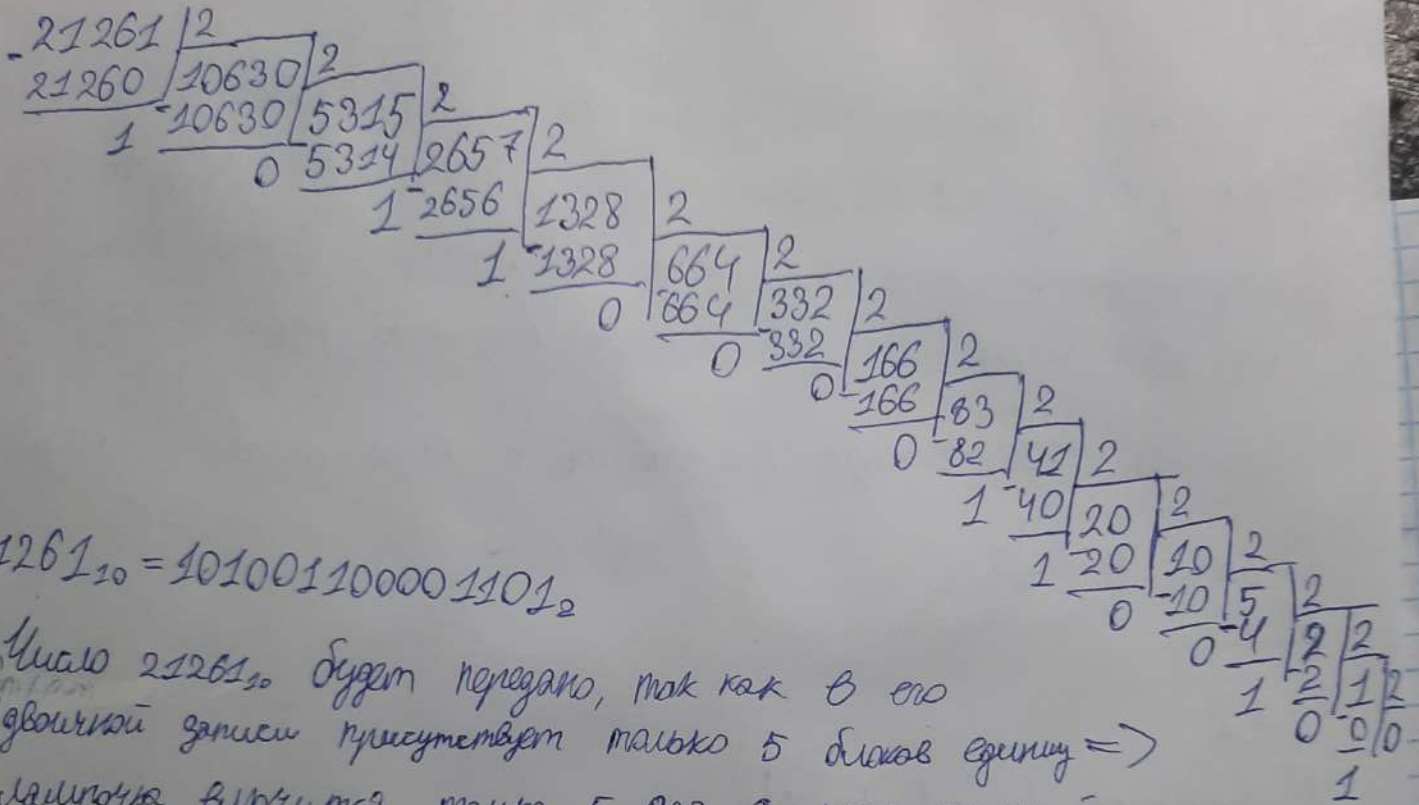 -21261 2
21260 10630 2
1 -10630 5315 2
0 5314 2657 2
1 -2656 1328 2
1 -1328 664 2
0 -664 332 2
0 -332 166 2
0 -166 83 2
0 -82 41 2
1 -40 20 2
1 -20 10 2
0 -10 5 2
0 -4 2 2
1 -2 1 2
0 -0 0
1
1261₁₀ = 101001100001101₂
Число 21261₁₀ будет передано, так как в его
двоичной записи присутствует только 5 блоков единиц =>
лампочка включится только 5